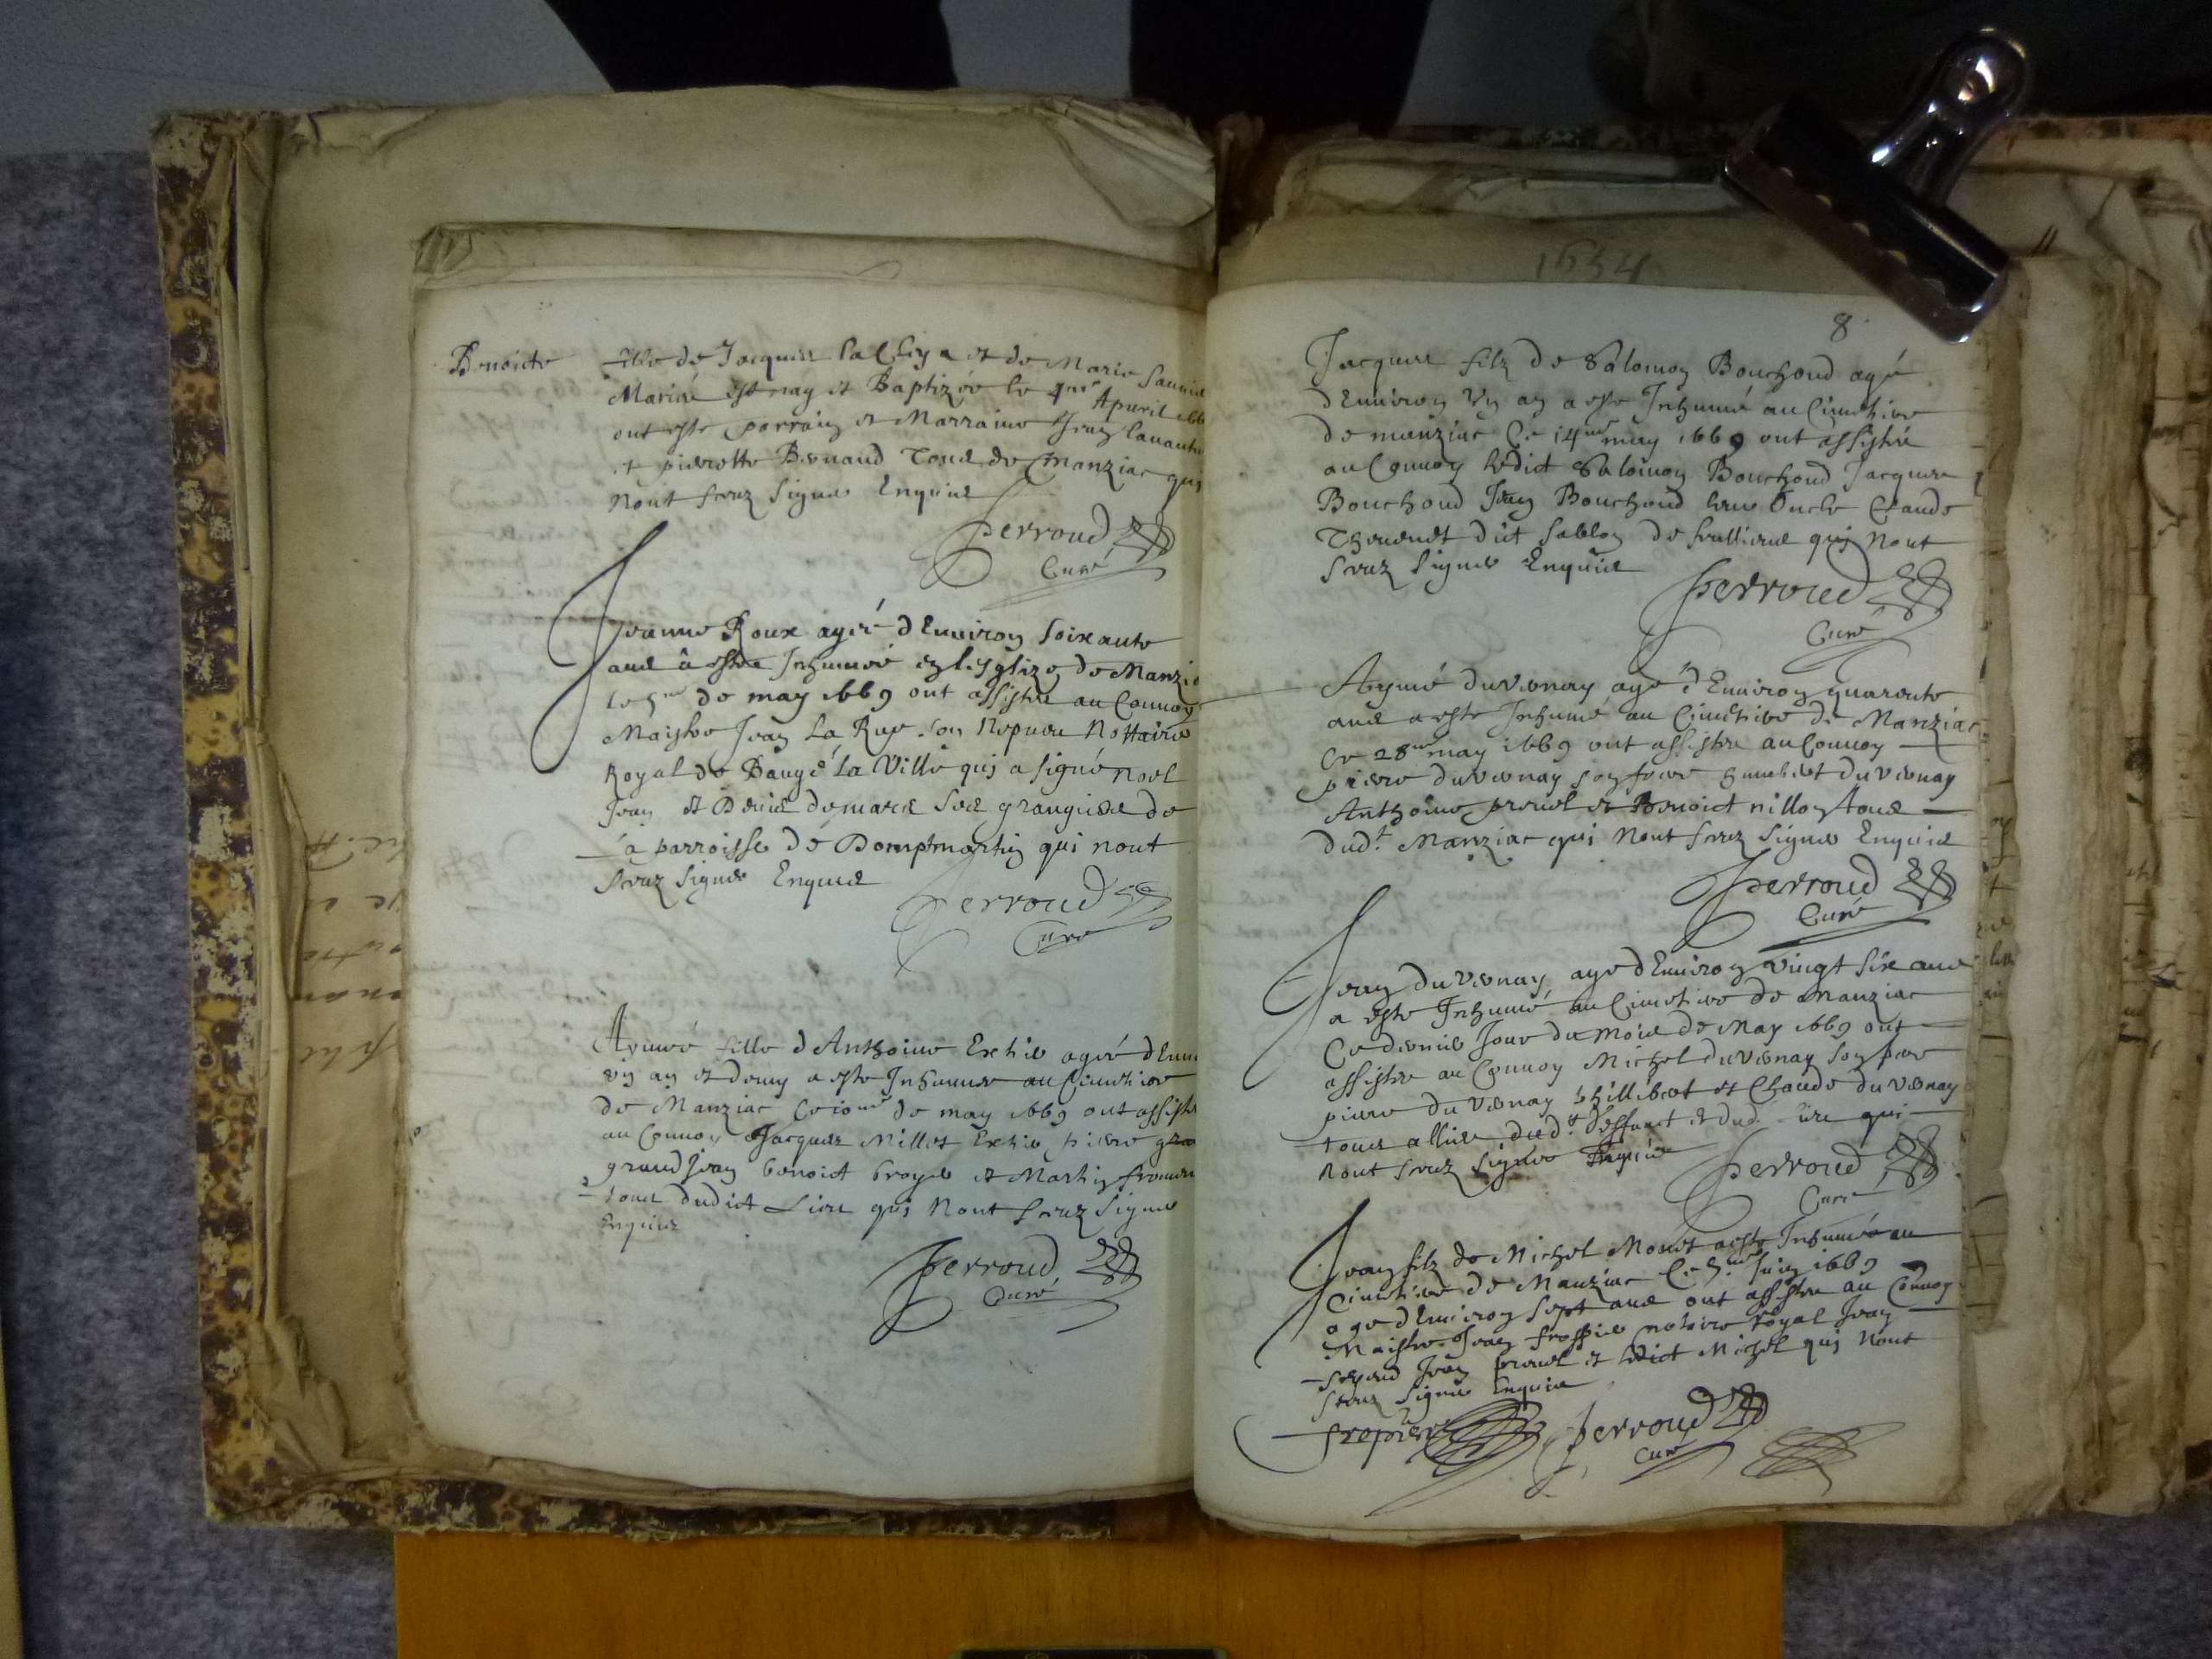 Benoicte fille de Jacques la et de Marie
Mariné est nay et Baptizée le 4me Apuril 166
ont esté parrain et Marraine Jean
et pierrotte Benaud tous de Manziac qui
nont sceuz signer Enquis
Perroud
Curé
Jeanne Roux agée denuiron soixante
ans a estée Inhumée en lesglize de Manzia
le 5me de may 1669 ont assisté au Conuoy
Maistre Jean La Rue son Nepueu Nottaire
Royal de Baugé la Ville qui a signé noel
Jean et Denis demare ses grangiers de
la parroisse de Dompmartin qui nont
sceuz signer Enquis
Perroud
Curé
Aymée fille dAnthoine Extie agée denui
vn an et demy a esté Inhumée au Cimetiere
de Manziac Ce 10me de may 1669 ont assisté
au Conuoy Jacques Millet Extie pierre gra
grand Jean benoict broyer et Martin
tous dudict Lieu qui Nont sceuz signer
Enquis
Perroud
Curé
1654
8
Jacques filz de Salomon Bouchoud agé
denuiron vn an a esté Inhumé au Cimetiere
de manziac Ce 14me may 1669 ont assisté
au Conuoy ledict Salomon Bouchoud Jacques
Bouchoud Jean Bouchoud leur Oncle Claude
Theuenet dit Sablon de qui Nont
sceuz signer Enquis
Perroud
Curé
Aymé duvernay agé denuiron quarente
ans a esté Inhumé au Cimetiere de Manziac
Ce 28me may 1669 ont assisté au Conuoy
pierre duvernay son frere humbert duvernay
Anthoine preuel et Benoict nillon tous
dudt Manziac qui Nont sceuz signer Enquis
Perroud
Curé
Jean duvernay agé denuiron vingt six ans
a esté Inhumé au Cimetiere de Manziac
Ce dernier Jour du mois de May 1669 ont
assisté au Conuoy Michel duvernay son pere
pierre duvernay phillibert et Claude duvernay
tous alliés dudt deffunct et dud. lieu qui
nont sceuz signer Enquis
Perroud
Curé
Jean filz de Michel Monet a esté Inhumé au
Cimetiere de Manziac Ce 5me Juin 1669
agé denuiron sept ans ont assisté au Conuoy
Maistre Jean froppier notaire Royal Jean
Jean preuel et ledict Michel qui Nont
sceuz signer Enquis
fropier
Perroud
Curé